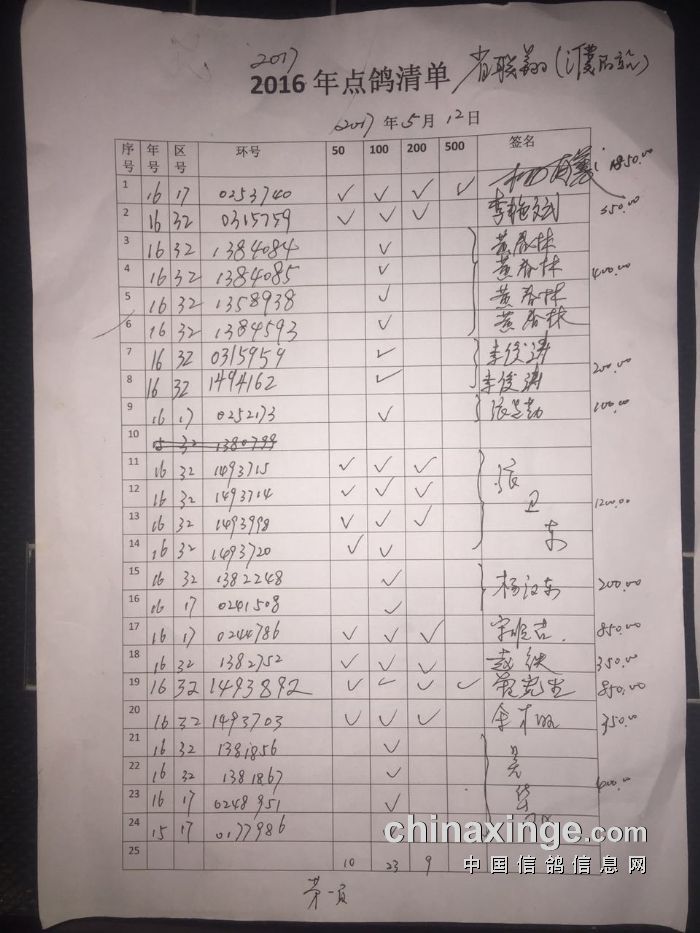 2017
2016 年点鸽清单 省联翔(濮阳站)
2017 年 5 月 12 日
序号 年号 区号 环号 50 100 200 500 签名
1 16 17 0253740 ✓ ✓ ✓ ✓ 850.00
2 16 32 0315759 ✓ ✓ ✓ 350.00
3 16 32 1384084 ✓ 黄春林
4 16 32 1384085 ✓ 黄春林 400.00
5 16 32 1358938 ✓ 黄春林
6 16 32 1384593 ✓ 黄春林
7 16 32 0315959 ✓ 李俊涛
8 16 32 1494162 ✓ 李俊涛 200.00
9 16 17 0252173 ✓ 100.00
10 15 32 1380799
11 16 32 1493715 ✓ ✓ ✓ 张
12 16 32 1493714 ✓ ✓ ✓ 卫 1200.00
13 16 32 1493998 ✓ ✓ ✓ 东
14 16 32 1493720 ✓ ✓
15 16 32 1382248 ✓ 杨汉东 200.00
16 16 17 0241508 ✓
17 16 17 0244786 ✓ ✓ ✓ 宋顺吉 850.00
18 16 32 1382752 ✓ ✓ ✓ 赵铁 350.00
19 16 32 1493892 ✓ ✓ ✓ ✓ 850.00
20 16 32 1493703 ✓ ✓ ✓ 350.00
21 16 32 1381856 ✓ 吴
22 16 32 1381867 ✓ 400.00
23 16 17 0248951 ✓
24 15 17 0177986
25 10 23 9
第一页
chinaxinge.com
中国信鸽信息网